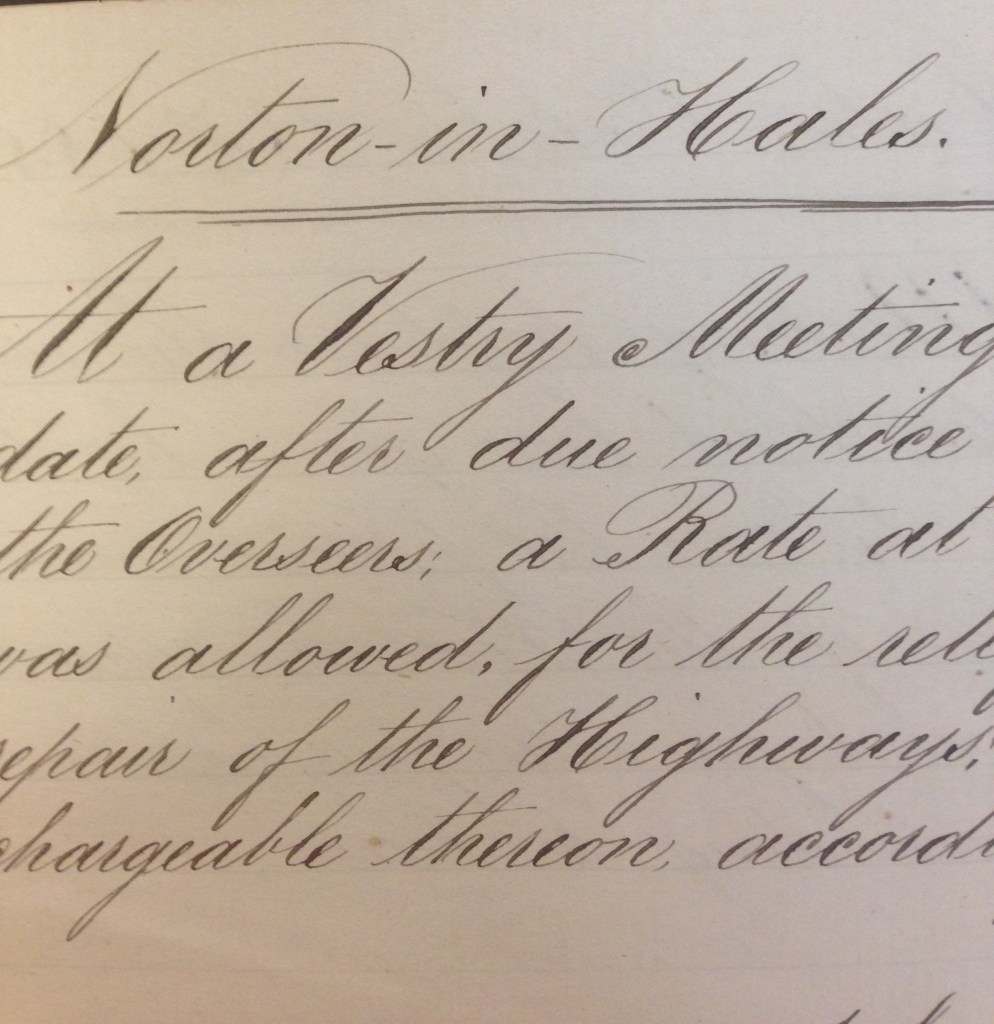 Norton-in-Hales.
At a Vestry Meeting
date, after due notice
the Overseers; a Rate at
was allowed, for the reli
repair of the Highways,
chargeable thereon, accordi